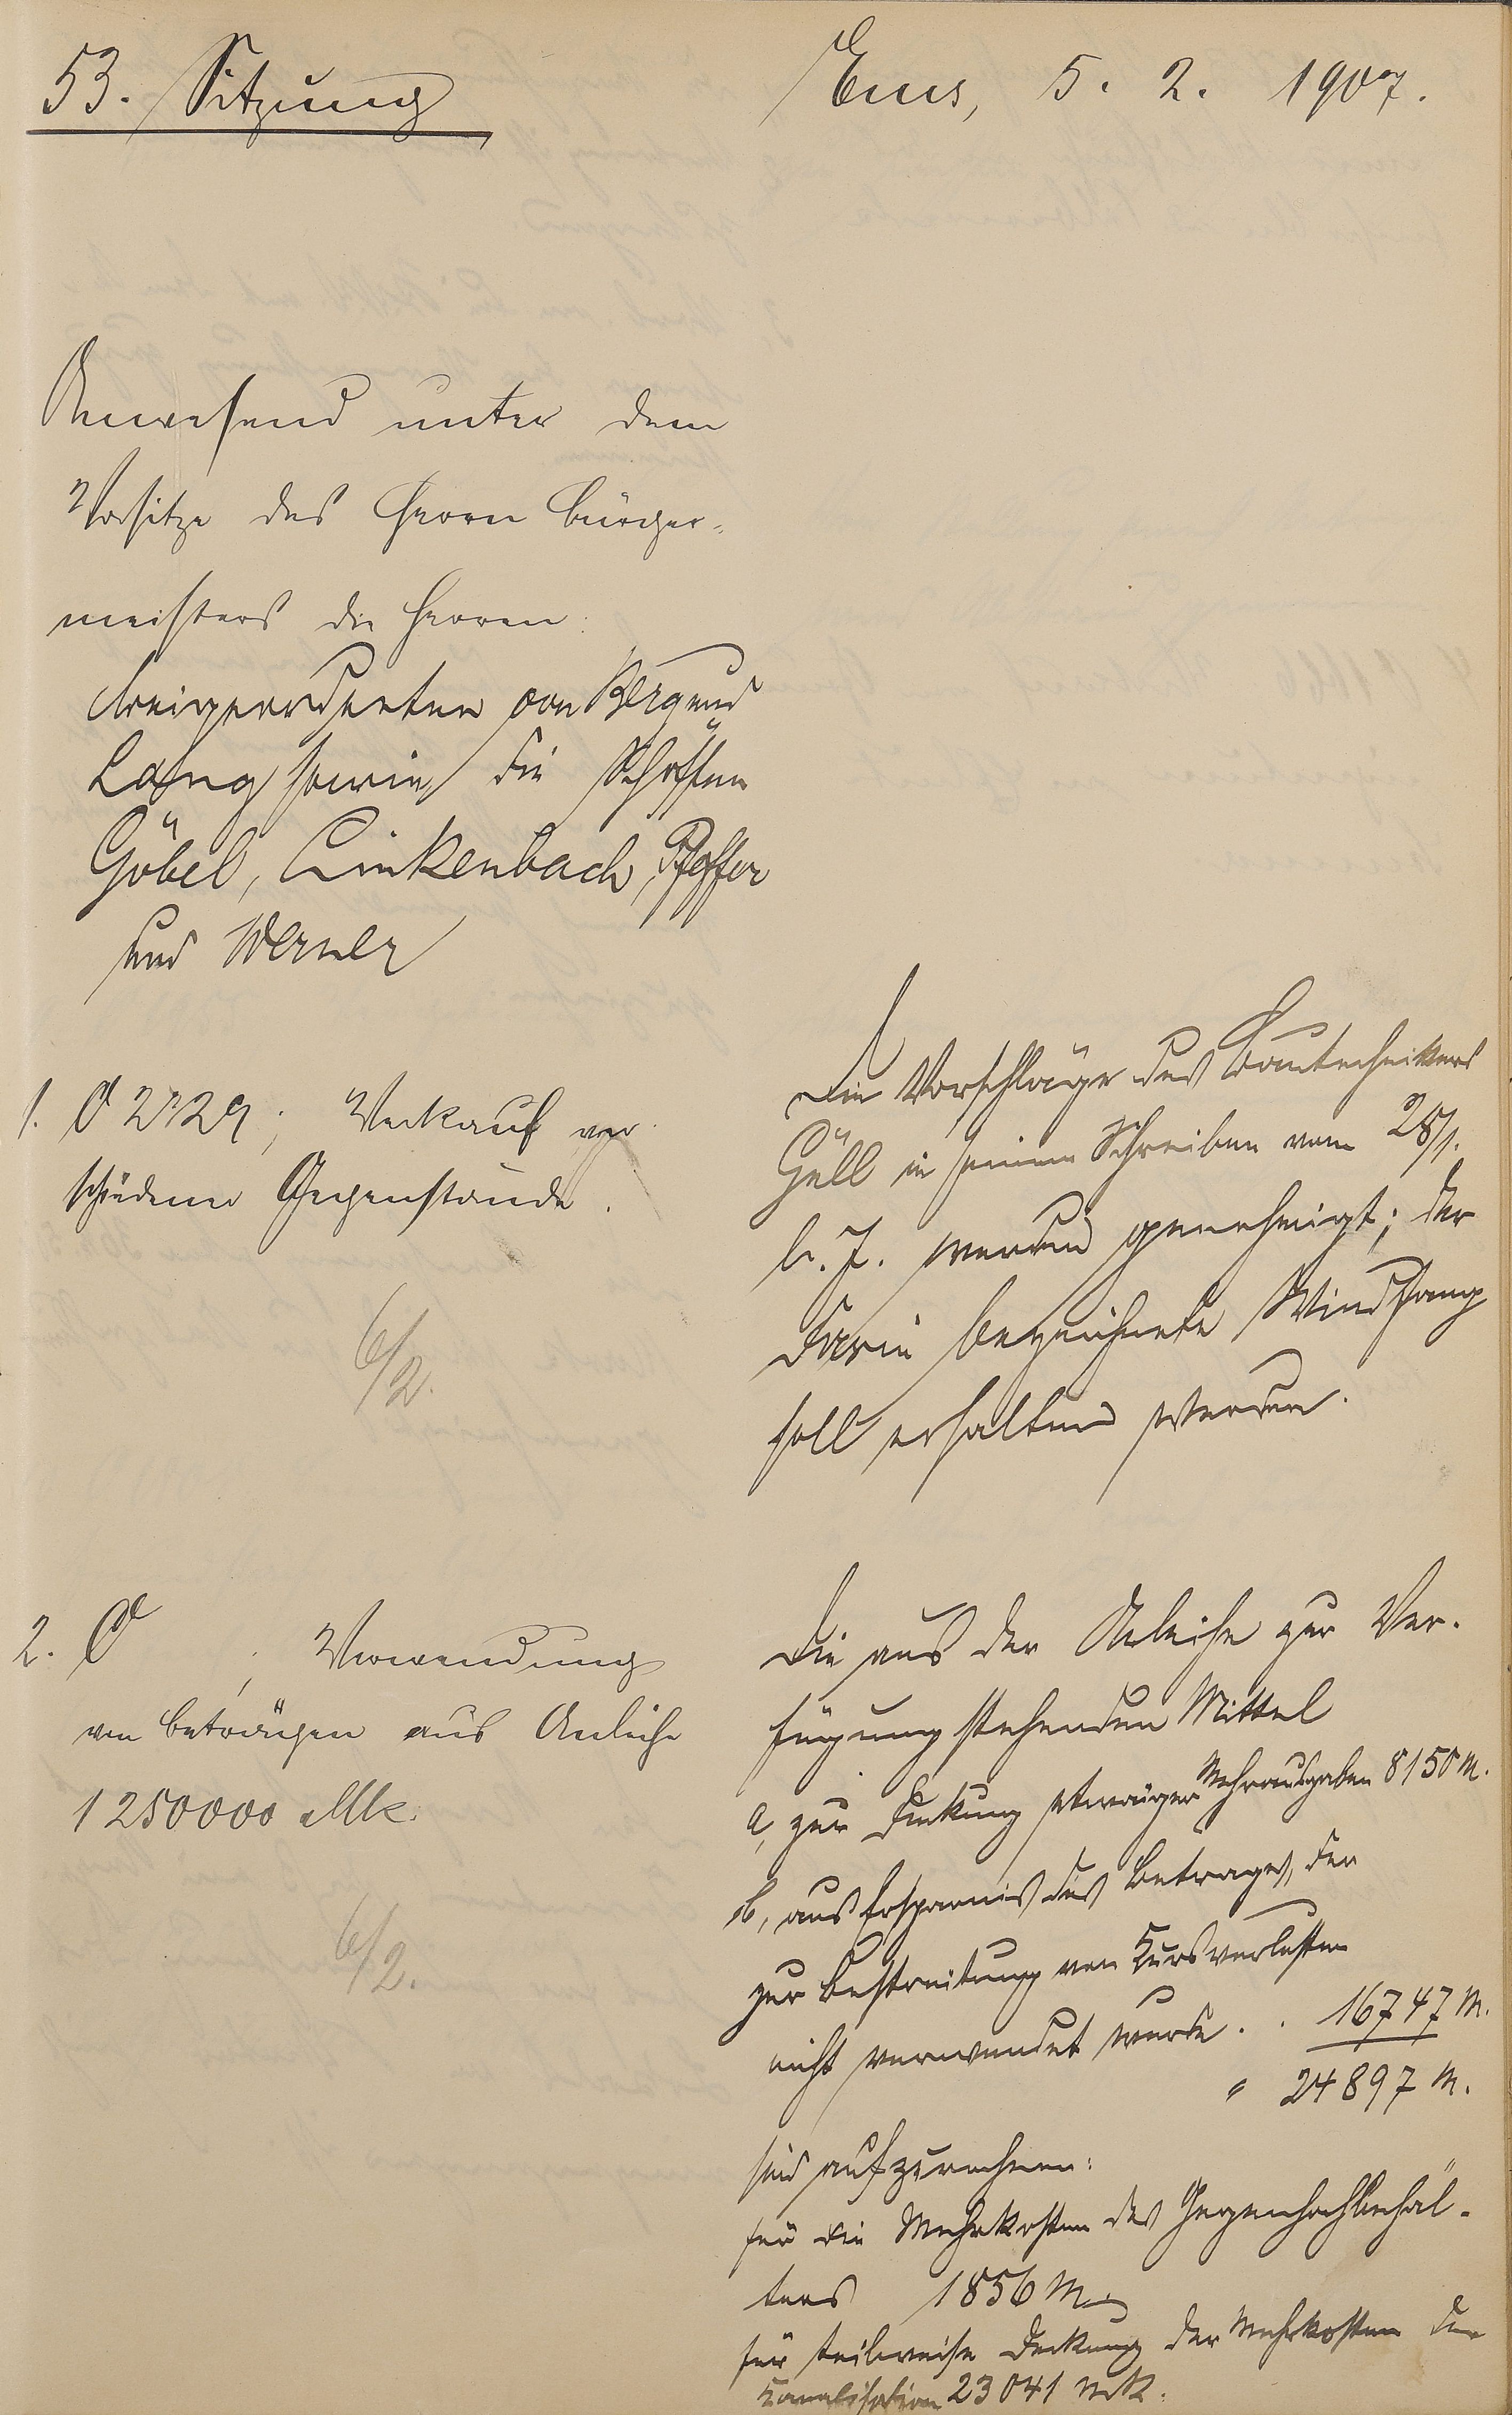 53. Sitzung
Ems, 5. 2. 1907.
Anwesend unter dem
Vorsitze des Herrn Bürger-
meisters die Herren:
Beigeordneten von Berg und
Lang sowie die Schöffen
Göbel, Linkenbach, Pfeffer
und Werner
1. O 2729; Verkauf ver-
schiedener Gegenstände.
6/2.
Die Vorschläge des Bautechnikers
Güll in seinem Schreiben vom 28/1.
l. J. werden genehmigt; der
darin bezeichnete Windfang
soll erhalten werden.
2. O ; Verwendung
von Beträgen aus Anleihe
1250000 Mk.
6/2.
Die aus der Anleihe zur Ver-
fügung stehenden Mittel
a, zur Deckung etwaiger Mehrausgaben 8150 M.
b, aus Ersparnis des Betrages, der
zur Bestreitung von Kursverlusten
nicht verwendet wurde . . 16747 M.
= 24897 M.
sind aufzurechnen:
für die Mehrkosten des Gegenhochbehäl-
ters 1856 M.
für teilweise Deckung der Mehrkosten der
Kanalisation 23041 Mk.